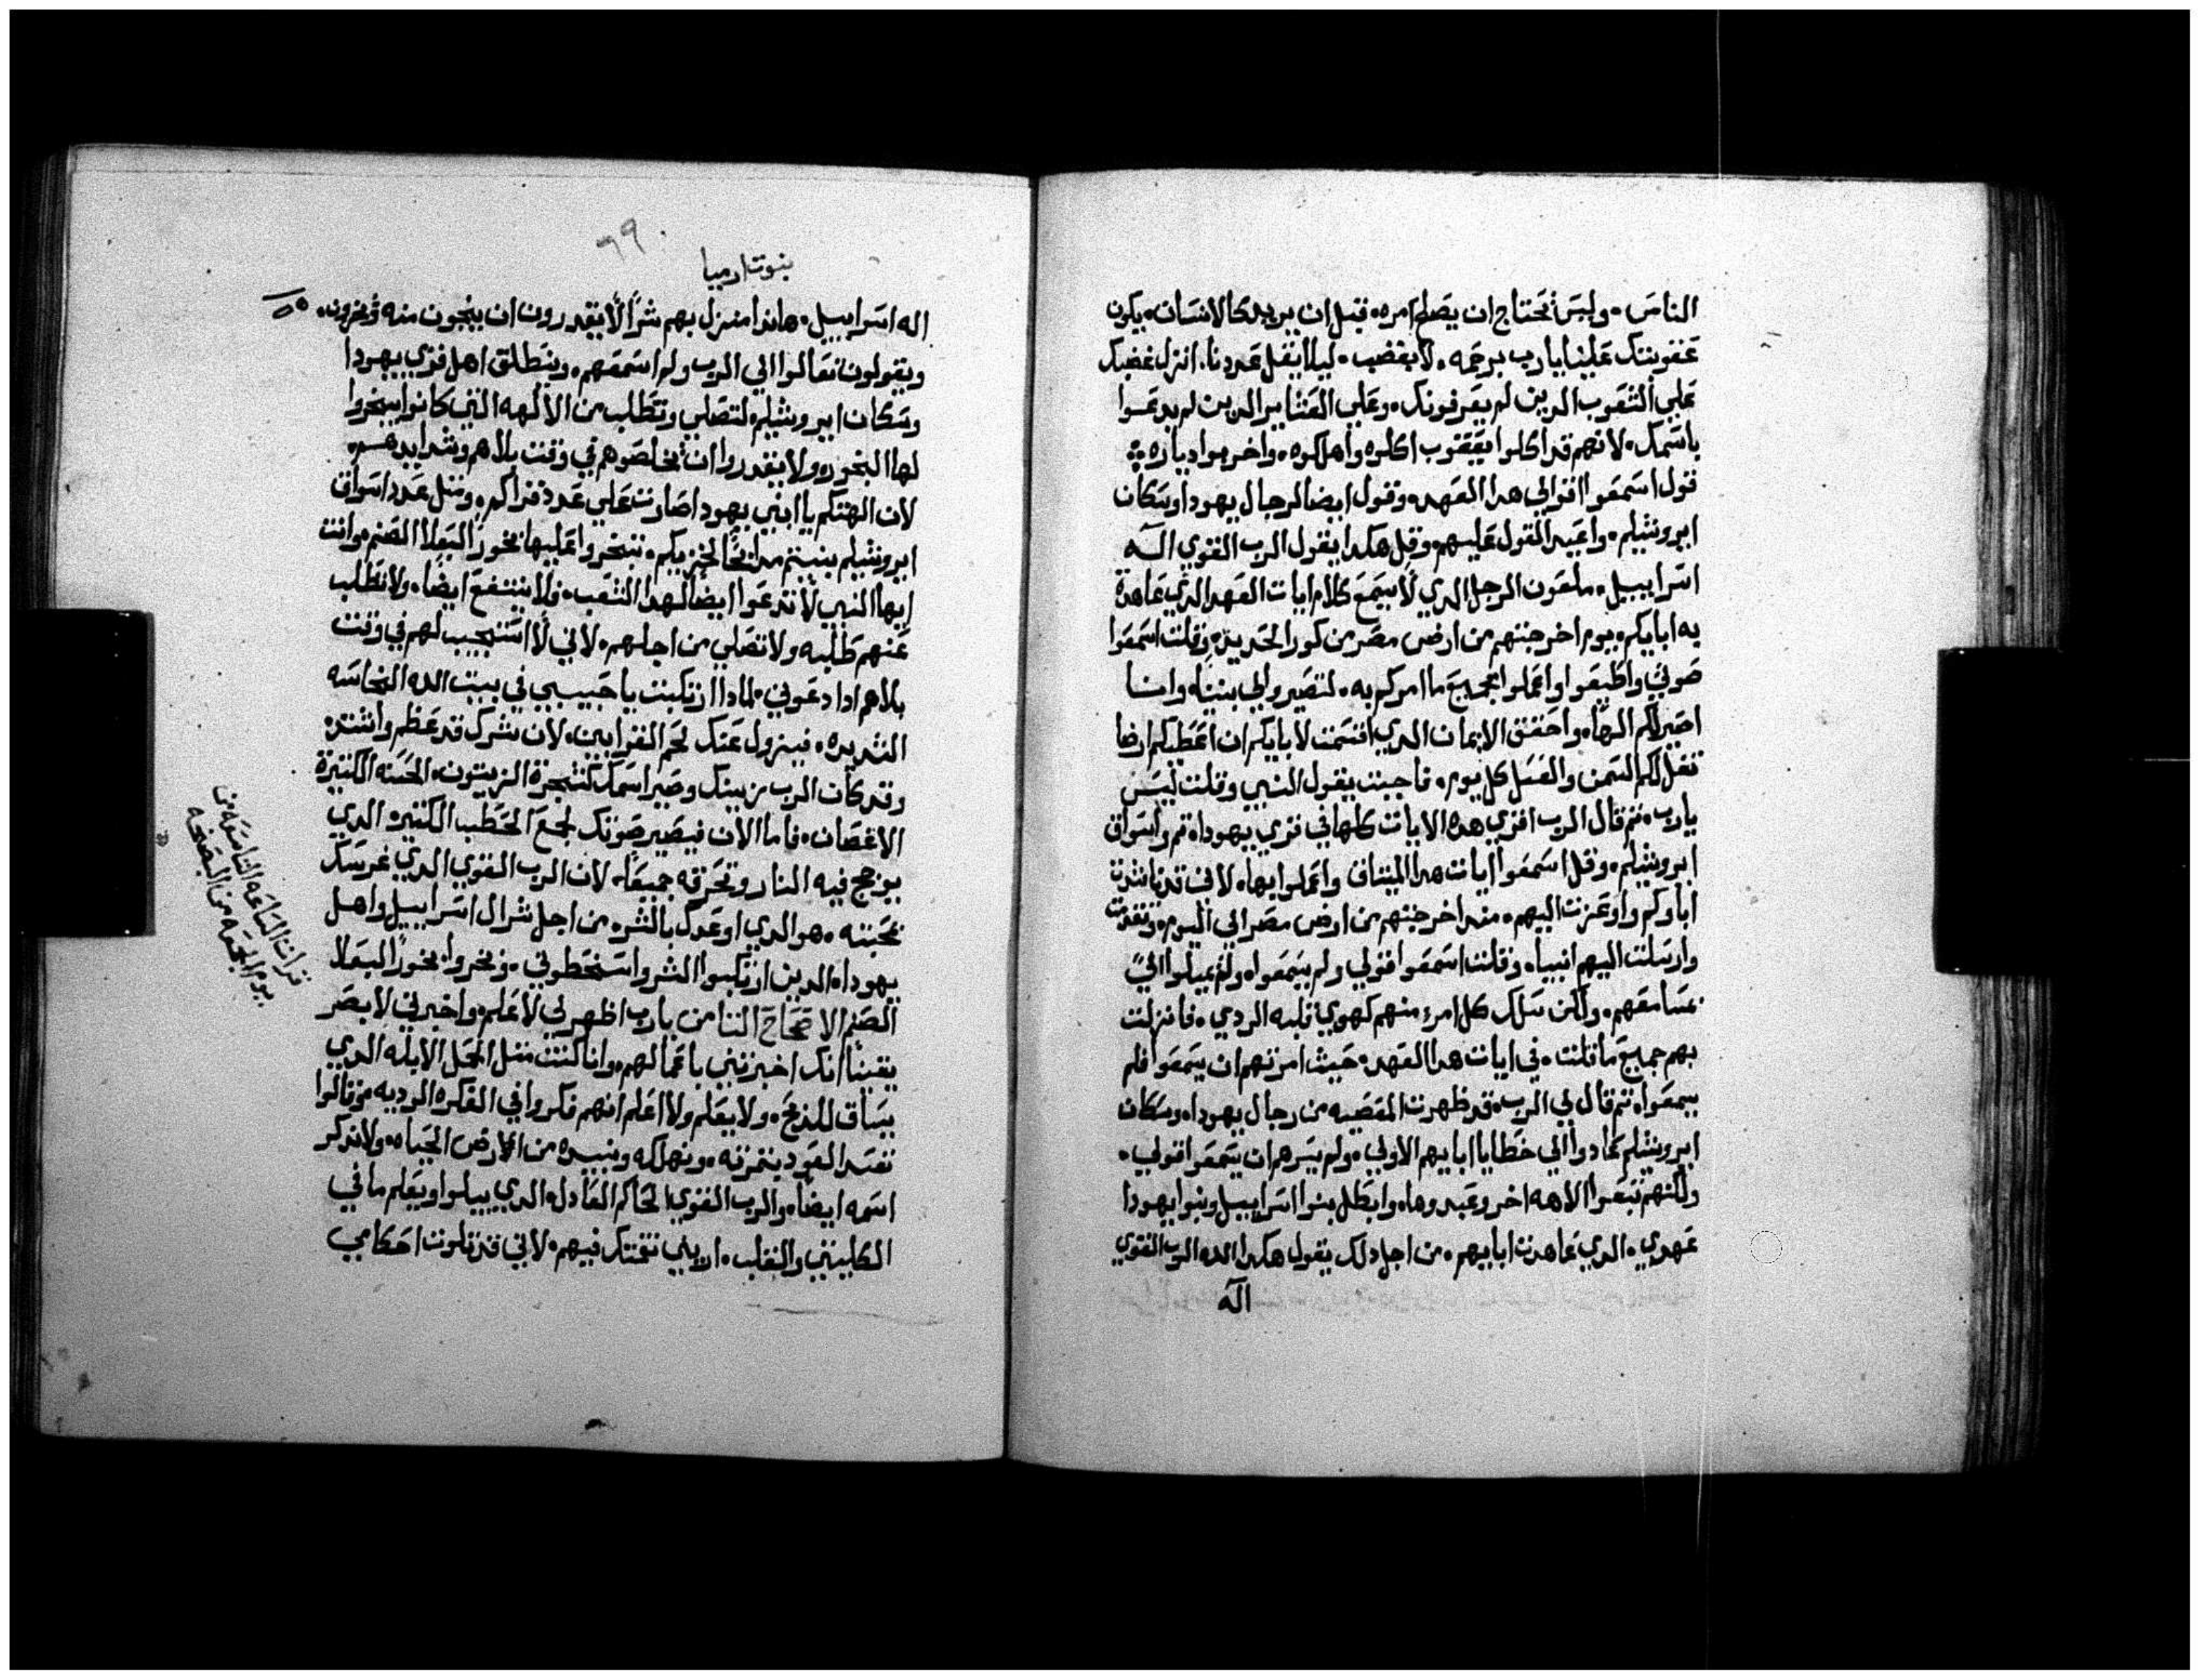 الناس. وليس تحتاج ان يصلح امره. قبل ان يريد كالانسان. يكون
عقوبتك علينا يا رب برحمه. لا بغضب. ليلا يقل عددنا. انزل غضبك
علي الشعوب الدين لم يعرفونك. وعلي العشاير الدين لم يدعوا
باسمك. لانهم قد اكلوا يعقوب اكلوه واهلكوه. واخربوا دياره
قول اسمعوا اقوالي هدا العهد. وقول ايضا لرجال يهودا وسكان
ايروشليم. واعيد القول عليهم. وقل هكدا يقول الرب القوي اله
اسراييل. ملعون الرجل الدي لا يسمع كلام ايات العهد الدي عاهدة
به ابايكم. يوم اخرجتهم من ارض مصر من كور الحديد. وقلت اسمعوا
صوتي واطيعوا واعملوا بجميع ما امركم به. لتصيروا لي بنينا. وانا
اصير لكم الها. واحقق الايمان الدي اقسمت لابايكم ان اعطيكم ارضا
تغل لكم السمن والعسل كل يوم. فاجبت يقول النبي وقلت ليس
يا رب. تم قال الرب اقري هده الايات كلها في قري يهودا. تم واسواق
ايروشليم. وقل اسمعوا ايات هدا الميتاق واعملوا بها. لاني قد ناشدت
اباوكم واوعزت اليهم. مند اخرجتهم من ارض مصر الي اليوم. وتقدمت
وارسلت اليهم انبيا. وقلت اسمعوا قولي ولم يسمعوا. ولم يميلوا الي
بمسامعهم. ولكن سلك كل امرء منهم كهوي قلبه الردي. فانزلت
بهم جميع ما قلت. في ايات هدا العهد. حيث امرتهم ان يسمعوا فلم
يسمعوا. تم قال لي الرب. قد ظهرت المعصيه من رجال يهودا. وسكان
ايروشليم عادوا الي خطايا ابايهم الاولي. ولم يسرهم ان يسمعوا قولي.
ولكنهم تبعوا الاهه اخر وعبدوها. وابطل بنوا اسراييل وبنوا يهودا
عهدي. الدي عاهدت ابايهم. من اجل دلك يقول هكدا الله الرب القوي
اله
٦٩
بنوت ارميا
اله اسراييل. هاندا منزل بهم شرا لا يقدرون ان ينجون منه ويخرون.
ويقولون تعالوا الي الرب ولم اسمعهم. وينطلق اهل قري يهودا
وسكان ايروشليم. لتصلي وتطلب من الالهه التي كانوا يبخروا
لها البخور. ولا يقدروا ان يخلصوهم في وقت بلاهم وشدايدهم.
لان الهتكم يا ابني يهودا صارت علي عدد قراكم. ومتل عدد اسواق
ايروشليم بنيتم مدابحا لخزيكم. تبخروا عليها بخور البعلا الصنم. وانت
ايها النبي لا تدعوا ايضا لهدا الشعب. ولا يشفع ايضا. ولا تطلب
عنهم طلبه ولا تصلي من اجلهم. لاني لا استجيب لهم في وقت
بلاهم ادا دعوني. لمادا ارتكبت يا حبيبي في بيت الله النجاسه
الشديده. فيزول عنك لحم القرابين. لان شرك قد عظم واشتد
وقد كان الرب يزينك وصير اسمك كشجرة الزيتون. الحسنه الكتيرة
الاغصان. فاما الان فيصير صوتك لجمع الحطب الكتير. الدي
يوججج فيه النار وتحرقه جميعا. لان الرب القوي الدي غرسك
بمحبته. هو الدي اوعدك بالشر. من اجل شر ال اسراييل واهل
يهودا. الدين ارتكبوا الشر واسخطوني. وبخروا. بخورا البعلا
الصنم الاصحاح التامن يا رب اظهر لي لاعلم. واخبرني لابصر
يقينا انك اخبرتني باعمالهم. وانا كنت متل الحمل الابله الدي
يساق للدبح. ولا يعلم ولا اعلم انهم فكروا في الفكره الرديه. وقالوا
نفسد العود بتمرته. ونهلكه ونبيده من الارض الحياه. ولا ندكر
اسمه ايضا. والرب القوي الحاكم العادل. الدي يبيلوا ويعلم ما في
الكليتين والقلب. اريني نقمتك فيهم. لاني قد تلوت احكامي
تقرات الساعه التاسعه من
يوم الجمعه من البصخه